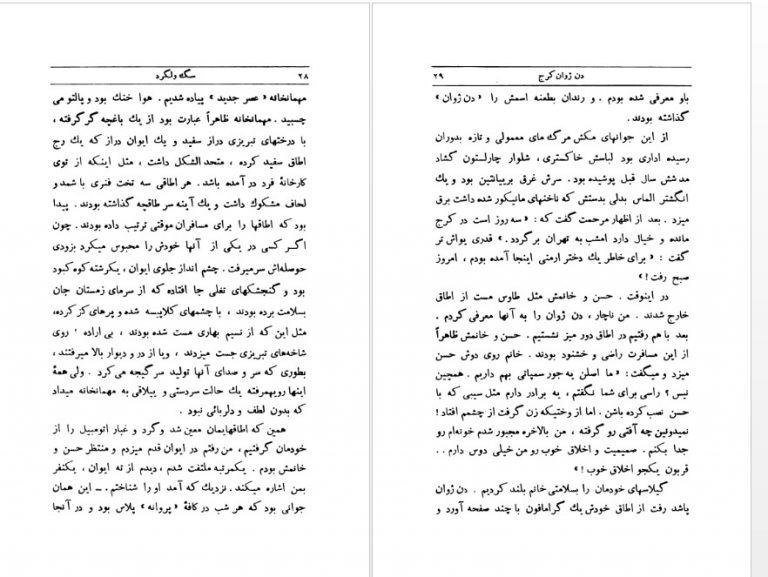 ۲۸ سگ ولگرد
مهمانخانه «عصر جدید» پیاده شدیم. هوا خنك بود و پالتو می
چسبید. مهمانخانه ظاهراً عبارت بود از یك باغچه گرگرفته،
با درختهای تبریزی دراز سفید و یك ایوان دراز که یك رج
اطاق سفید کرده، متحدالشکل داشت، مثل اینکه از توی
کارخانهٔ فرد در آمده باشد. هر اطاقی سه تخت فنری با شمد و
لحاف مشکوك داشت و یك آینه سر طاقچه گذاشته بودند. پیدا
بود که اطاقها را برای مسافران موقتی ترتیب داده بودند. چون
اگر کسی در یکی از آنها خودش را محبوس میکرد بزودی
حوصله‌اش سر میرفت. چشم انداز جلوی ایوان، یکرشته کوه کبود
بود و گنجشکهای تغلی جا افتاده که از سرمای زمستان جان
بسلامت برده بودند، با چشمهای کلاپیسه شده و پرهای کز کرده،
مثل این که از نسیم بهاری مست شده بودند، بی اراده روی
شاخه‌های تبریزی جست میزدند، ویا از در و دیوار بالا میرفتند،
بطوری که سر و صدای آنها تولید سرگیجه می‌کرد. ولی همهٔ
اینها رویهمرفته یك حالت سردستی و ییلاقی به مهمانخانه میداد
که بدون لطف و دلربائی نبود.
همین که اطاقهایمان معین شد وگرد و غبار اتومبیل را از
خودمان گرفتیم، من رفتم در ایوان قدم میزدم و منتظر حسن و
خانمش بودم. یکمرتبه ملتفت شدم، دیدم از ته ایوان، یکنفر
بمن اشاره میکند. نزدیك که آمد او را شناختم. ــ این همان
جوانی بود که هر شب در کافهٔ «پروانه» پلاس بود و در آنجا
دن ژوان کرج ۲۹
باو معرفی شده بودم. و رندان بطعنه اسمش را «دن ژوان»
گذاشته بودند.
از این جوانهای مکش مرگ مای معمولی و تازه بدوران
رسیده اداری بود لباسش خاکستری، شلوار چارلستون گشاد
مد شش سال قبل پوشیده بود. سرش غرق بریانتین بود و یك
انگشتر الماس بدلی بدستش که ناخنهای مانیکور شده داشت برق
میزد. بعد از اظهار مرحمت گفت که: «سه روز است در کرج
مانده و خیال دارد امشب به تهران برگردد.» قدری یواش تر
گفت: «برای خاطر یك دختر ارمنی اینجا آمده بودم، امروز
صبح رفت!»
در اینوقت. حسن و خانمش مثل طاوس مست از اطاق
خارج شدند. من ناچار، دن ژوان را به آنها معرفی کردم.
بعد با هم رفتیم در اطاق دور میز نشستیم. حسن و خانمش ظاهراً
از این مسافرت راضی و خشنود بودند. خانم روی دوش حسن
میزد و میگفت: «ما اصلن یه جور سمپاتی بهم داریم. همچین
نیس؟ راسی برای شما نگفتم، یه برادر دارم مثل سیبی که با
حسن نصب کرده باشن. اما از وختیکه زن گرفت از چشمم افتاد!
نمیدونین چه آفتی رو گرفته، من بالاخره مجبور شدم خونه‌ام رو
جدا بکنم. صمیمیت و اخلاق خوب رو من خیلی دوس دارم..
قربون یکجو اخلاق خوب!»
گیلاسهای خودمان را بسلامتی خانم بلند کردیم. دن ژوان
پاشد رفت از اطاق خودش یك گرامافون با چند صفحه آورد و